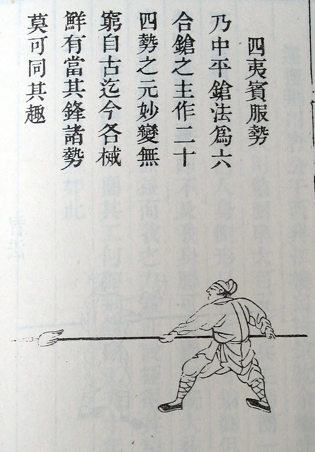 四夷賓服勢
乃中平鎗法為六
合鎗之主作二十
四勢之元妙變無
窮自古迄今各械
鮮有當其鋒諸勢
莫可同其趣